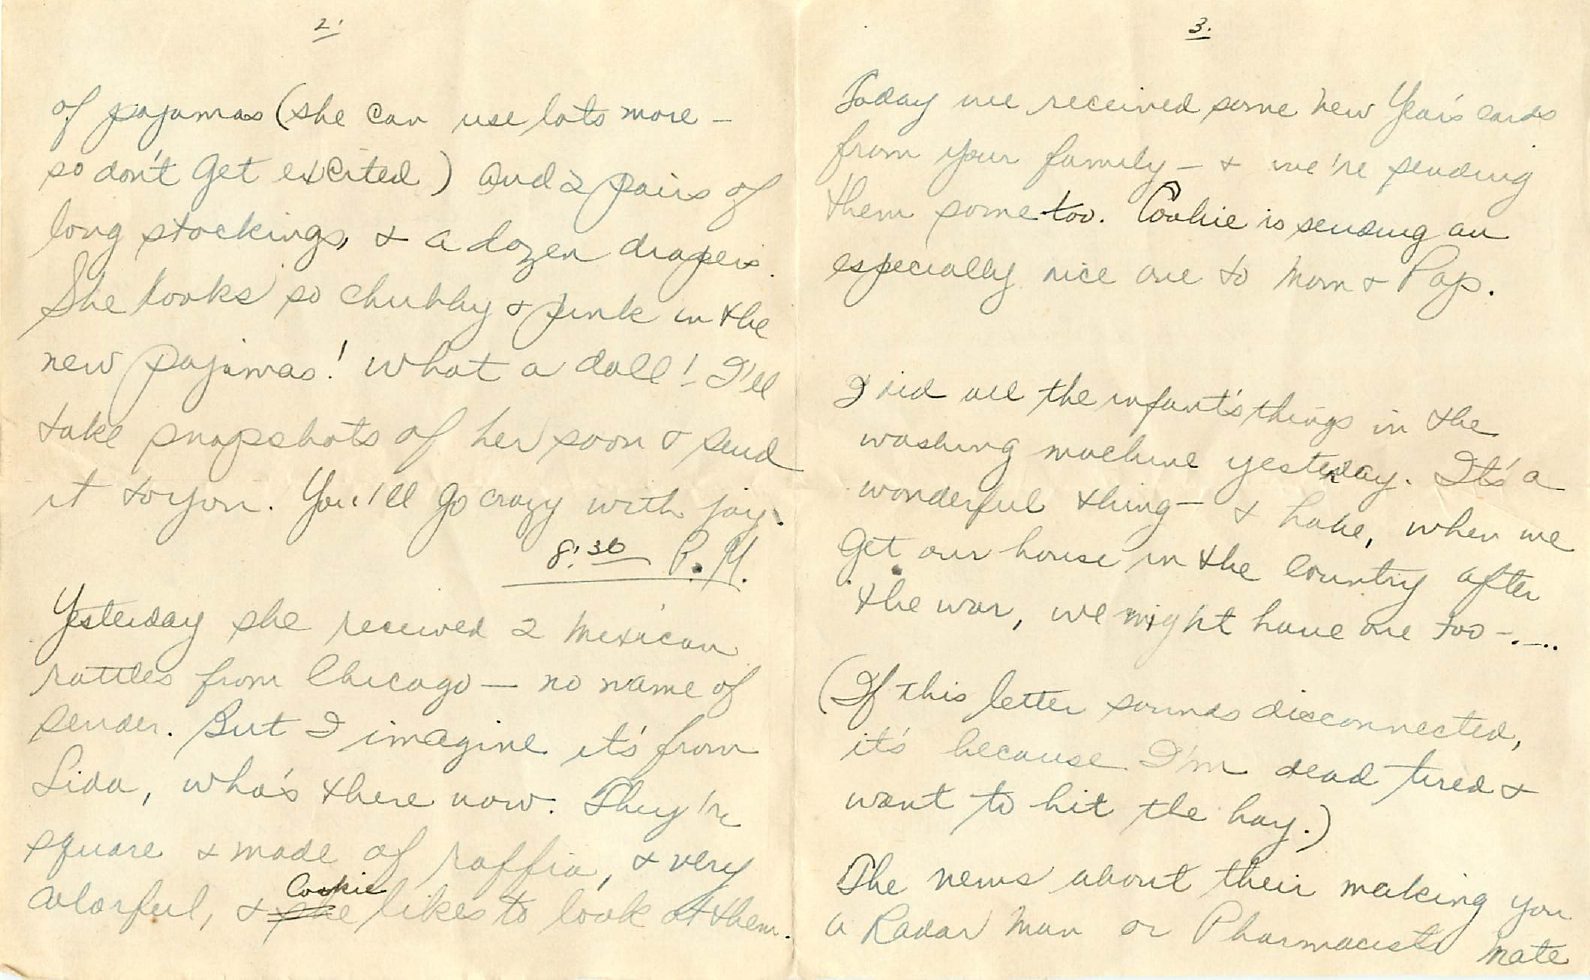 2.
of pajamas (she can use lots more –
so don't get excited) and 2 pairs of
long stockings, & a dozen diapers.
She looks so chubby & pink in the
new pajamas! What a doll! I'll
take snapshots of her soon & send
it to you. You'll go crazy with joy.
8:30 P.M.
Yesterday she received 2 Mexican
rattles from Chicago — no name of
sender. But I imagine it's from
Lida, who's there now. They're
square & made of raffia, & very
colorful, & Cookie likes to look at them.
3.
Today we received some New Year's cards
from your family – & we're sending
them some too. Cookie is sending an
especially nice one to Mom & Pap.
I did all the infant's things in the
washing machine yesterday. It's a
wonderful thing – & babe, when we
get our house in the country after
the war, we might have one too –....
(If this letter sounds disconnected,
it's because I'm dead tired &
want to hit the hay.)
The news about their making you
a Radar Man or Pharmacists mate